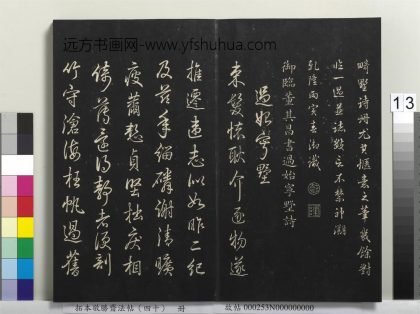 远方书画网-www.yfshuhua.com
墅诗册尤其愜意之筆幾餘對
臨一過並誌數言不禁神溯
乾隆丙寅春御識
御臨董其昌書過始寧墅詩
過始寧墅
束髮懷耿介逐物遂
推遷違志似如昨二紀
及茲年緇磷謝清曠
疲薾慙貞堅拙疾相
倚薄還得靜者便剖
竹守滄海枉帆過舊
13
拓本敬勝齋法帖（四十） 册 故帖 000253N000000000